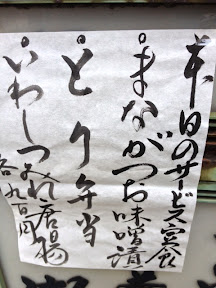 本日のサービス定食
・まながつお味噌漬
・とり弁当
・いわしつみれ唐揚
各九百円